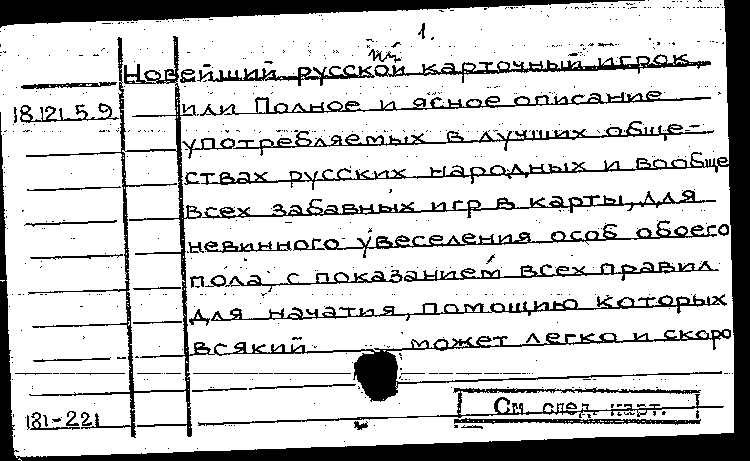 1.
Новейший русской карточный игрок,
18.121.5.9 или Полное и ясное описание
употребляемых в лучших обще-
ствах русских народных и вообще
всех забавных игр в карты, для
невинного увеселения особ обоего
пола, с показанием всех правил
для начатия, помощию которых
всякий может легко и скоро
181-221 См. след. карт.